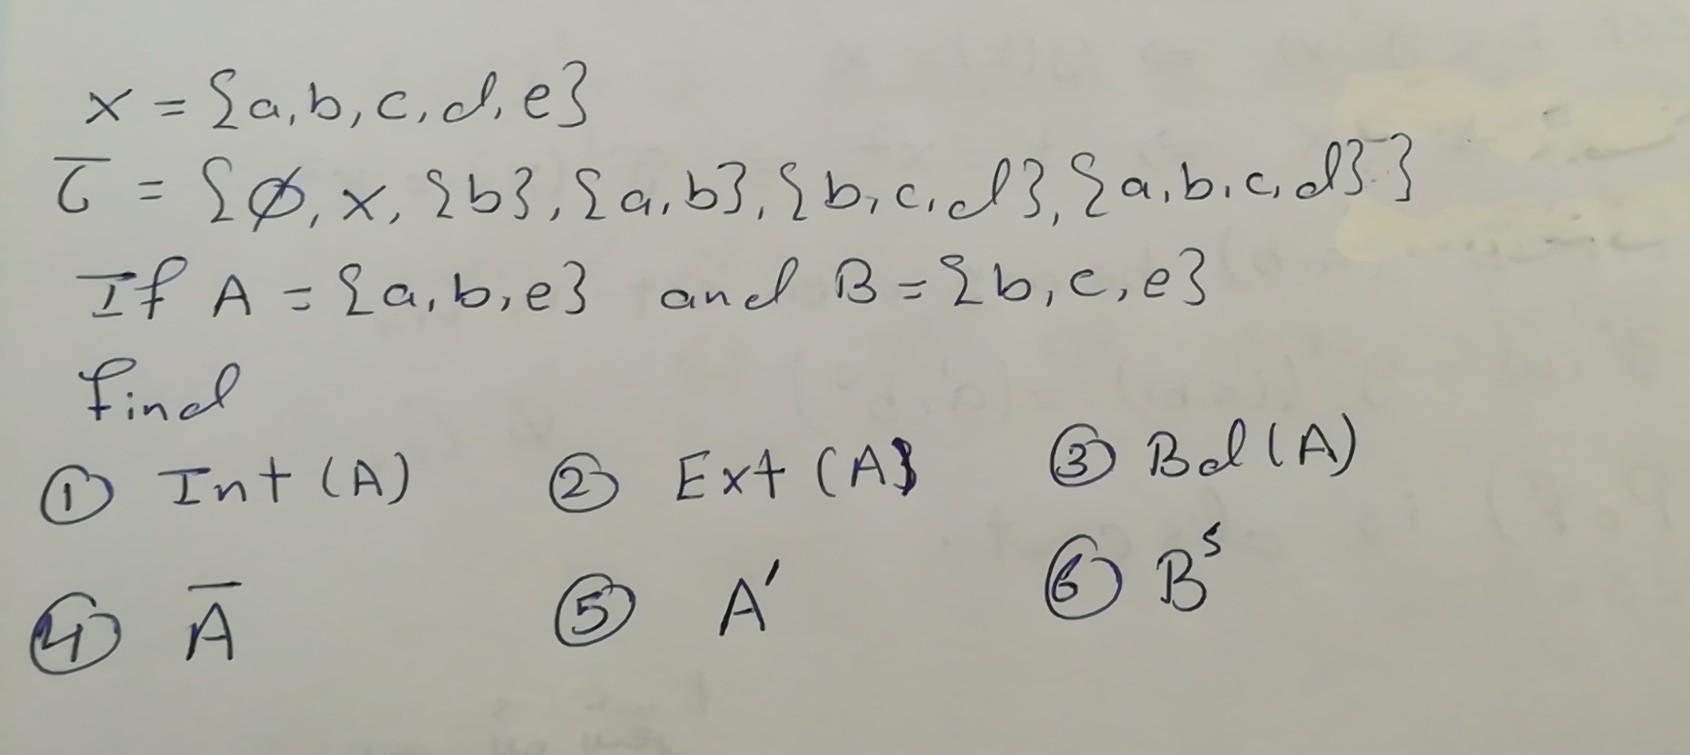 X = {a, b, c, d, e}
τ = {∅, X, {b}, {a, b}, {b, c, d}, {a, b, c, d}}
If A = {a, b, e} and B = {b, c, e}
find
① Int (A) ② Ext (A) ③ Bd (A)
④ A̅ ⑤ A′ ⑥ Bˢ